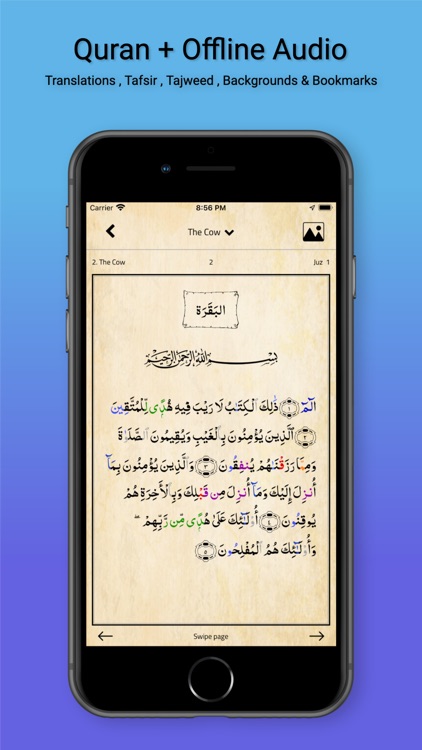 Quran + Offline Audio
Translations , Tafsir , Tajweed , Backgrounds & Bookmarks
Carrier 8:56 PM
The Cow
2. The Cow 2 Juz 1
البَقَرَة
بِسْمِ اللَّهِ الرَّحْمَٰنِ الرَّحِيمِ
الٓمٓ ١ ذَٰلِكَ ٱلْكِتَٰبُ لَا رَيْبَ فِيهِ هُدًى لِّلْمُتَّقِينَ
٢ ٱلَّذِينَ يُؤْمِنُونَ بِٱلْغَيْبِ وَيُقِيمُونَ ٱلصَّلَاةَ
وَمِمَّا رَزَقْنَاهُمْ يُنفِقُونَ ٣ وَٱلَّذِينَ يُؤْمِنُونَ بِمَآ
أُنزِلَ إِلَيْكَ وَمَآ أُنزِلَ مِن قَبْلِكَ وَبِٱلْآخِرَةِ هُمْ
يُوقِنُونَ ٤ أُو۟لَٰٓئِكَ عَلَىٰ هُدًى مِّن رَّبِّهِمْ ۖ
وَأُو۟لَٰٓئِكَ هُمُ ٱلْمُفْلِحُونَ ٥
Swipe page